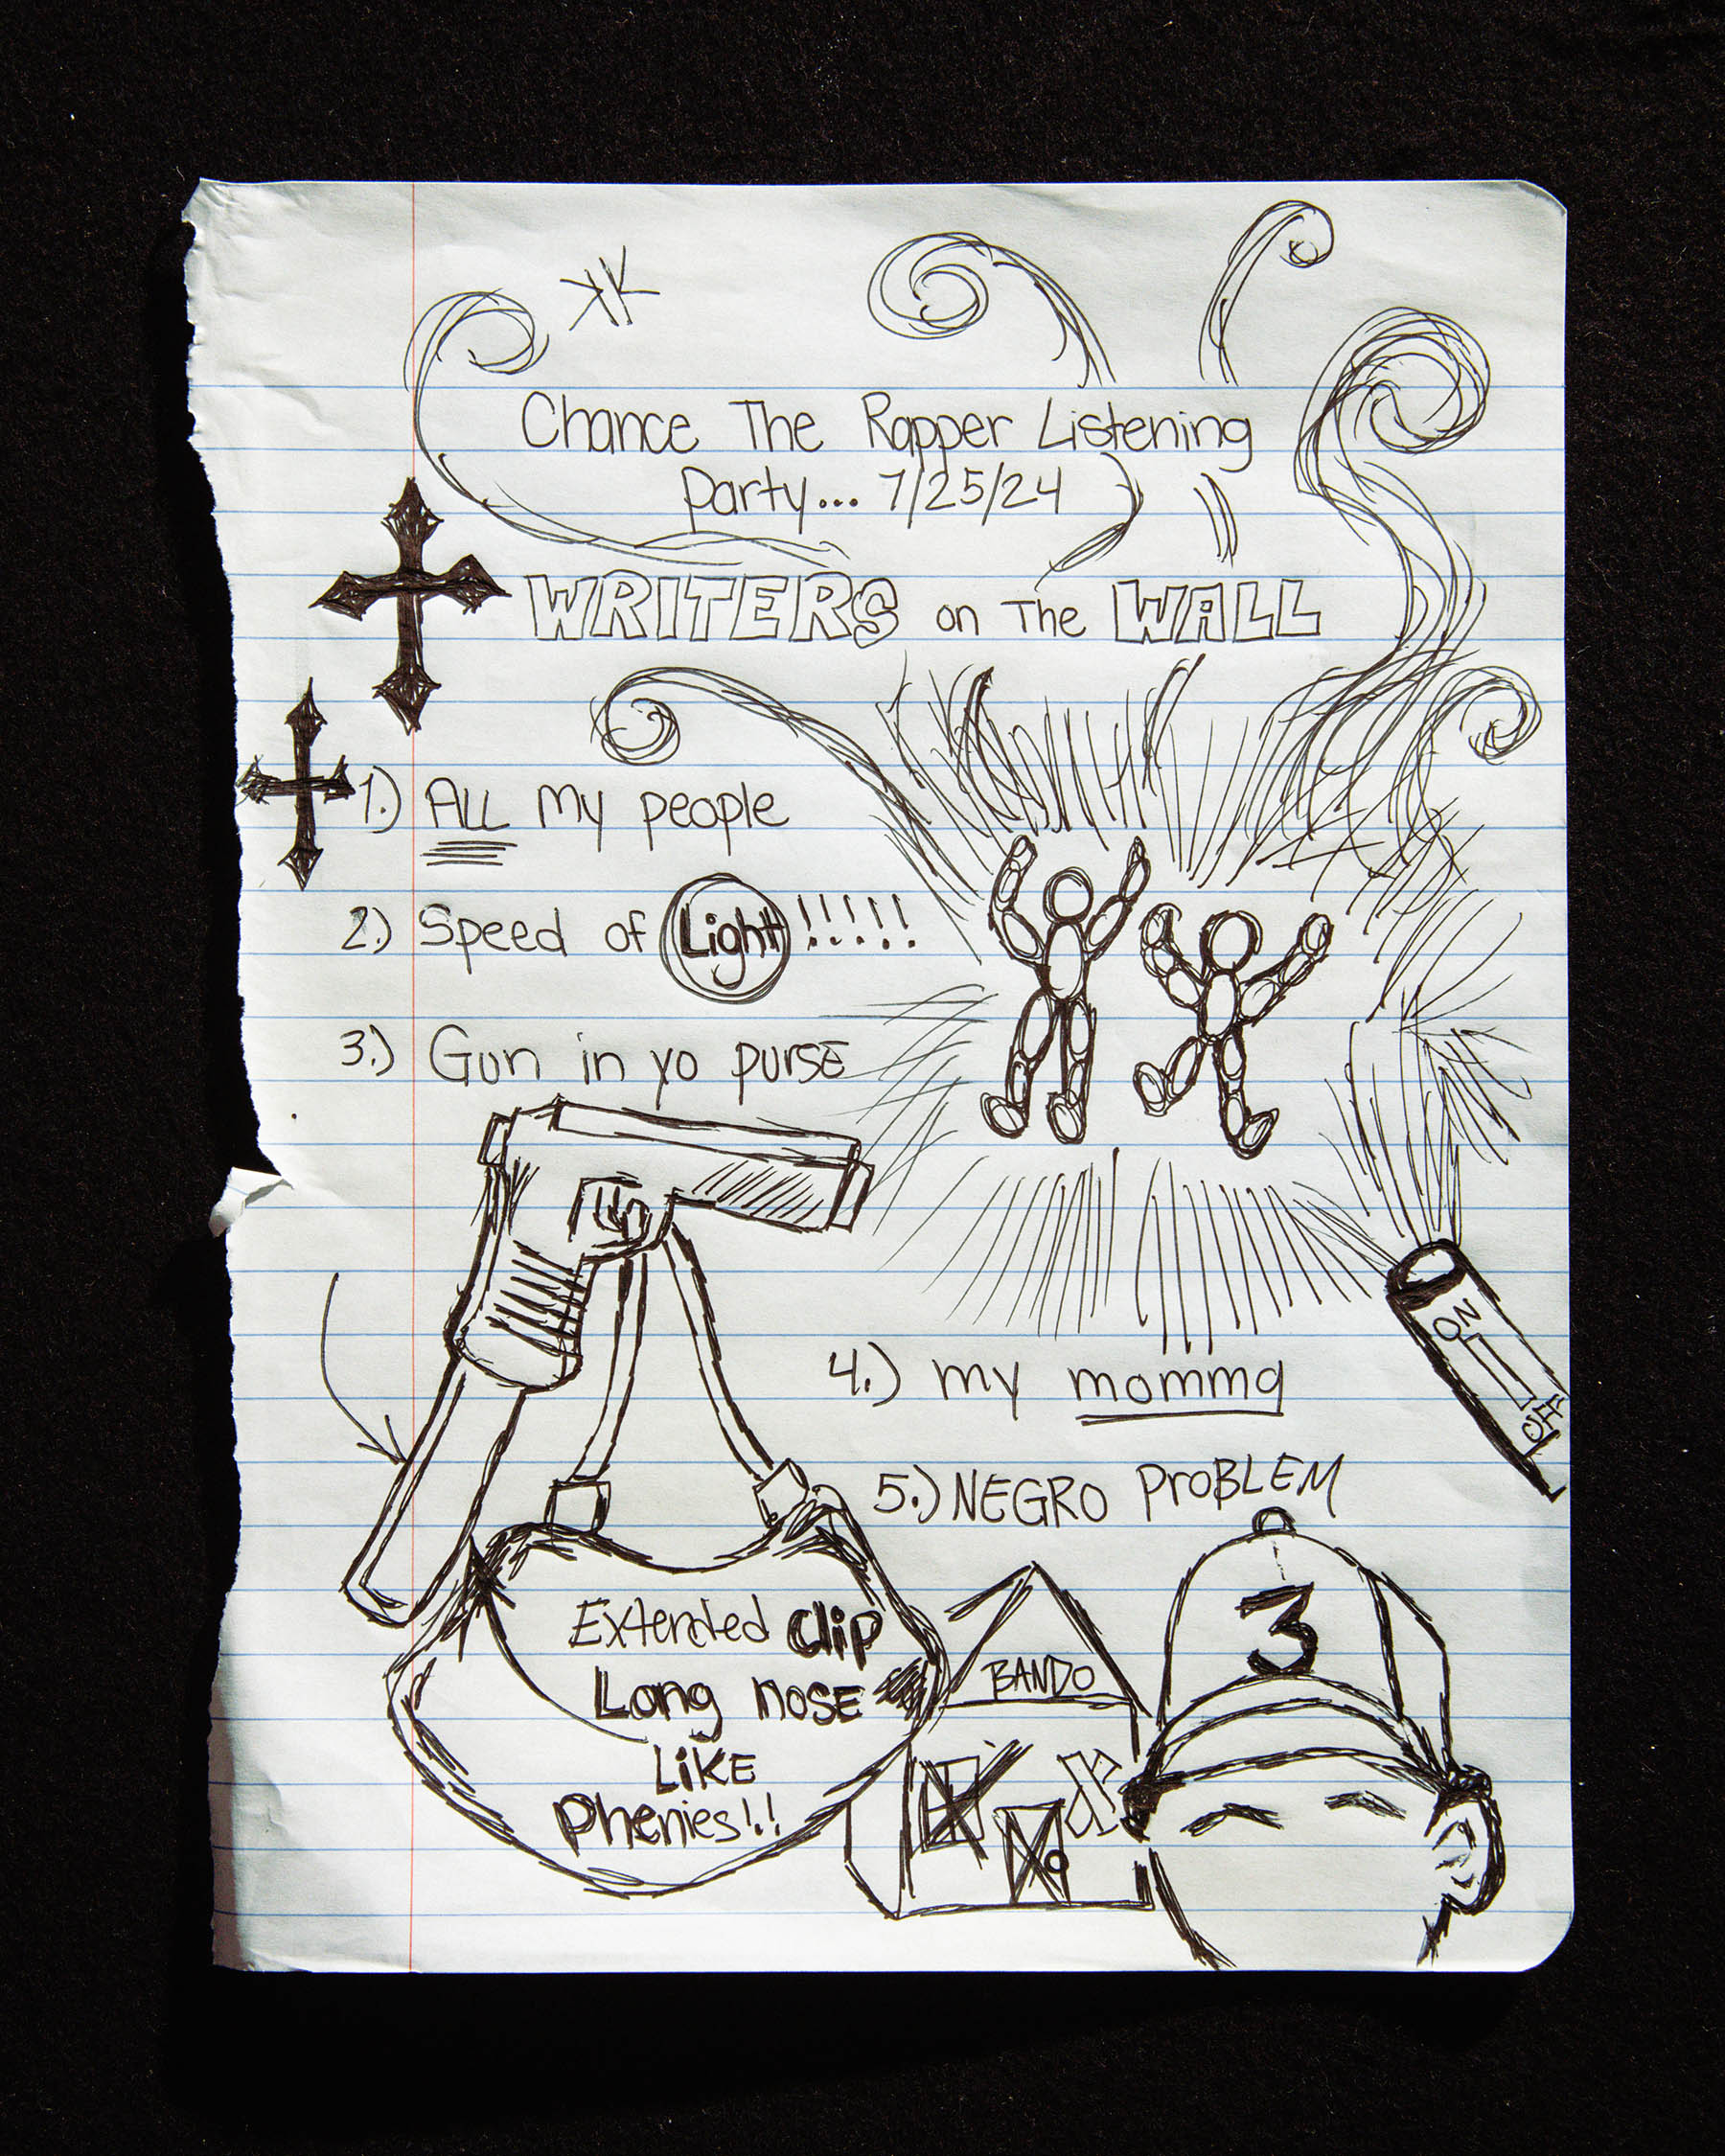 Chance The Rapper Listening
Party... 7/25/24
WRITERS on The WALL
1.) ALL My people
2.) Speed of Light!!!!!
3.) Gun in yo purse
4.) my momma
5.) NEGRO PROBLEM
ON
OFF
Extended Clip
Long nose
LIKE
Phenies!!
BANDO
3